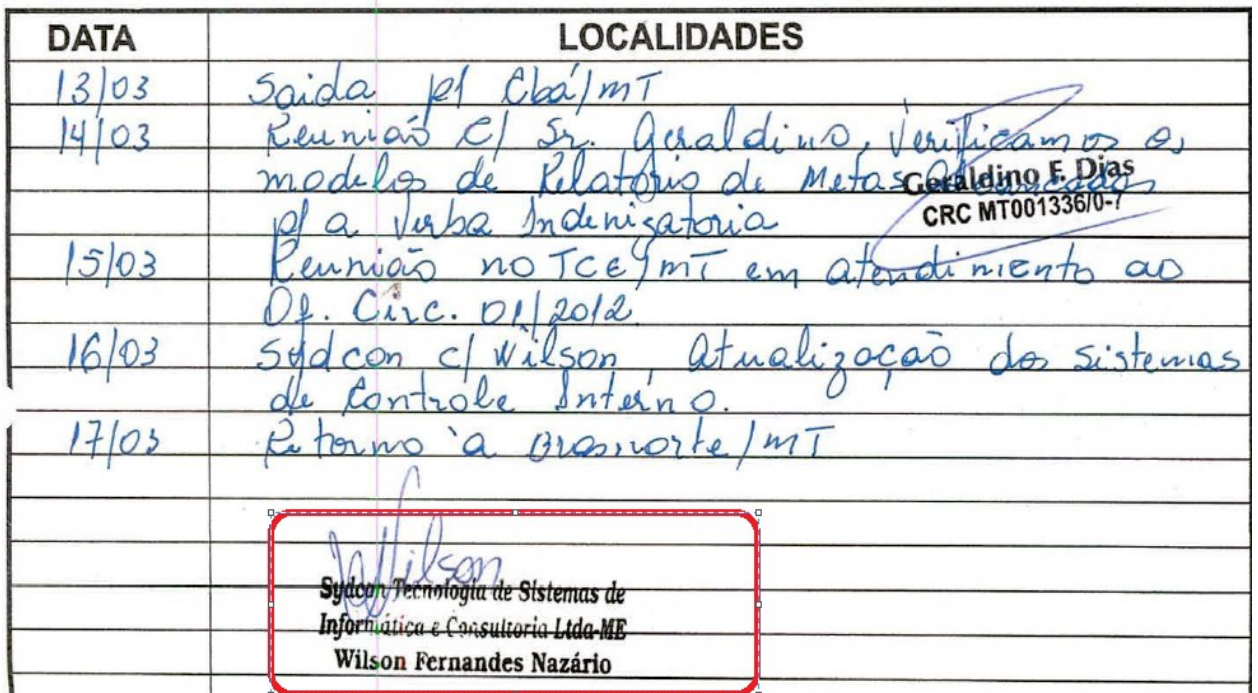 DATA LOCALIDADES
13/03 Saida p/ Cbá/MT
14/03 Reunião c/ Sr. Geraldino, Verificamos os
modelos de Relatório de Metas
Geraldino F. Dias
CRC MT001336/0-7
p/ a Verba Indenizatoria
15/03 Reunião no TCE/MT em atendimento ao
Of. Circ. 01/2012
16/03 Sydcon c/ Wilson, Atualização dos Sistemas
de Controle Interno.
17/03 Retorno à Brasnorte/MT
Wilson
Sydcon Tecnologia de Sistemas de
Informática e Consultoria Ltda-ME
Wilson Fernandes Nazário